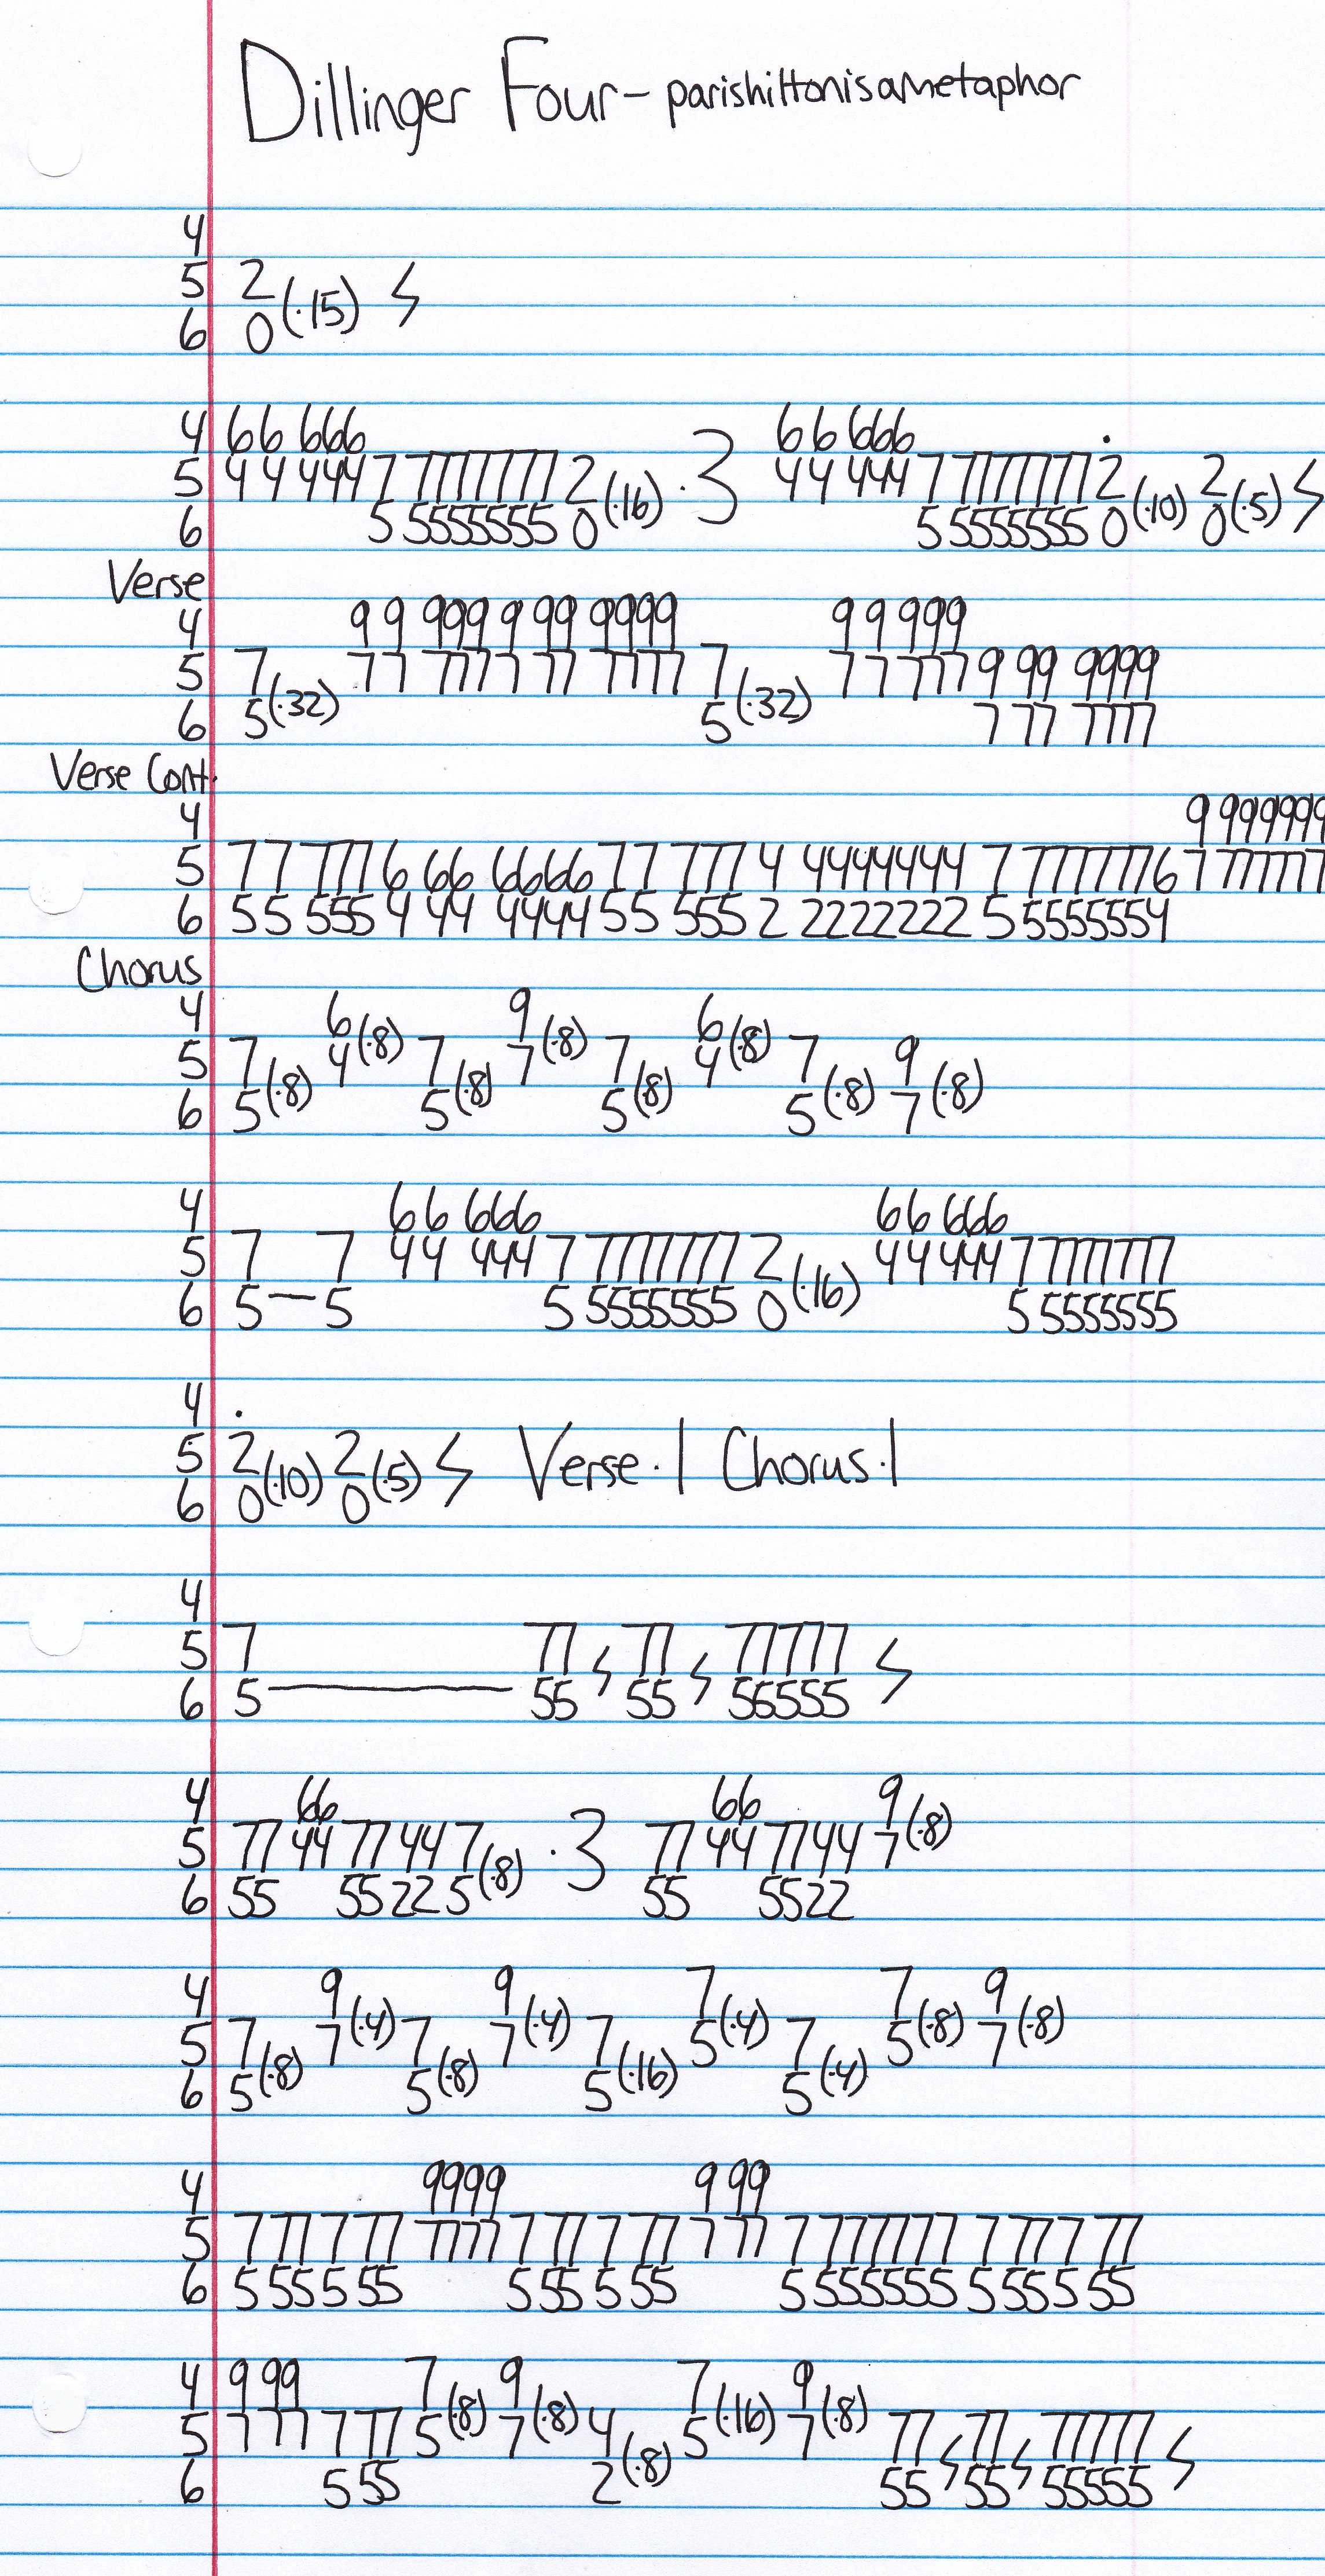 Dillinger Four - parishiltonisametaphor
4
5 2
6 0 (·15) ϟ
4 66 666 66 666 ·
5 44 444 7 7777777 2 ·3 44 444 7 7777777 2 2
6 5 5555555 0 (·16) 5 5555555 0 (·10) 0 (·5) ϟ
Verse
4 99 999 9 99 9999 99 999
5 7 77 777 7 77 7777 7 77 777 9 99 9999
6 5 (·32) 5 (·32) 7 77 7777
Verse Cont.
4 9 999999
5 77 777 6 66 6666 77 777 4 4444444 7 7777776 7 777777
6 55 555 4 44 4444 55 555 2 2222222 5 5555554
Chorus
4 6 9 6
5 7 4 (·8) 7 7 (·8) 7 4 (·8) 7 9
6 5 (·8) 5 (·8) 5 (·8) 5 (·8) 7 (·8)
4 66 666 66 666
5 7 7 44 444 7 7777777 2 44 444 7 7777777
6 5 — 5 5 5555555 0 (·16) 5 5555555
4 ·
5 2 2 Verse ·1 Chorus ·1
6 0 (·10) 0 (·5) ϟ
4
5 7 77 77 77777
6 5 — 55 ϟ 55 ϟ 55555 ϟ
4 66 66 9
5 77 44 77 44 7 ·3 77 44 77 44 7 (·8)
6 55 55 22 5 (·8) 55 55 22
4 9 9 7 7 9
5 7 7 (·4) 7 7 (·4) 7 5 (·4) 7 5 (·8) 7 (·8)
6 5 (·8) 5 (·8) 5 (·16) 5 (·4)
4 9999 9 99
5 7 77 7 77 7777 7 77 7 77 7 77 7 777777 7 77 7 77
6 5 55 5 55 5 55 5 55 5 555555 5 55 5 55
4 9 99 7 9 7 9
5 7 77 7 77 5 (·8) 7 (·8) 4 5 (·16) 7 (·8) 77 77 77777
6 5 55 2 (·8) 55 ϟ 55 ϟ 55555 ϟ